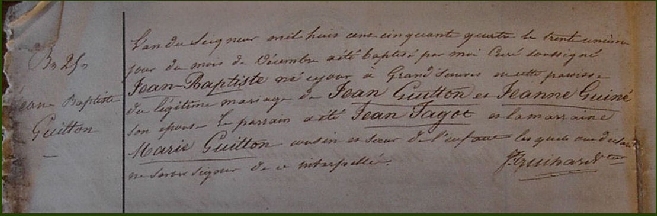 Bn 25
Jean Baptiste
Guitton
L'an du Seigneur mil huit cent cinquante quatre le trente unième
jour du mois de Décembre a été baptisé par moi Curé soussigné
Jean-Baptiste né ce jour à Grand'Souvre en cette paroisse
du légitime mariage de Jean Guitton et Jeanne Guiné
son épouse le parrain a été Jean Jagot et la marraine
Marie Guitton cousin et sœur de l'enfant lesquels ont déclaré
ne savoir signer de ce interpellé.